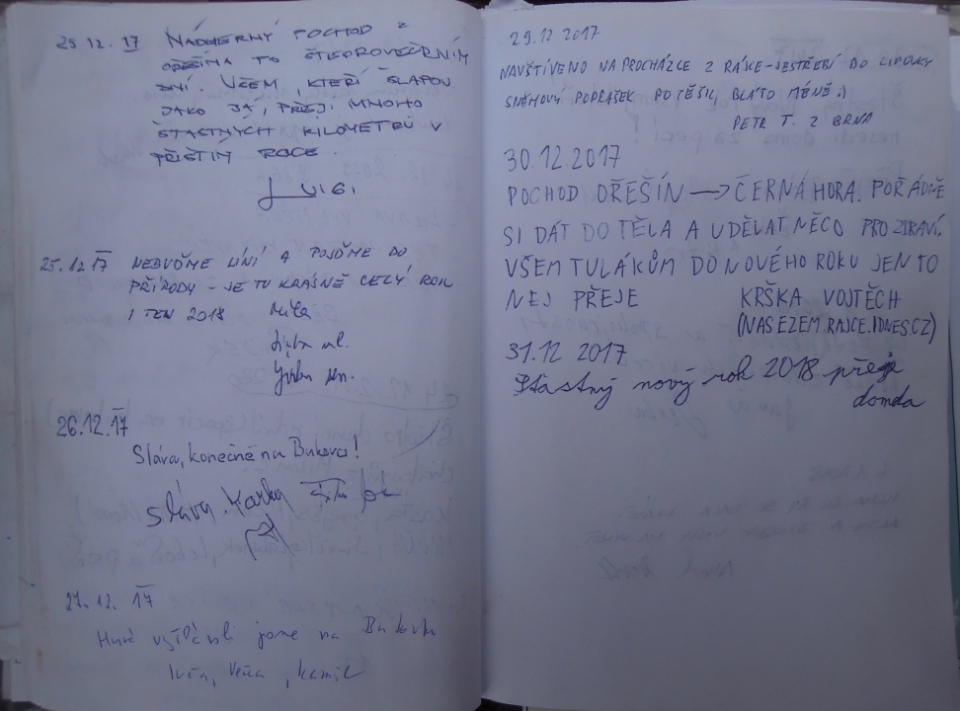 25.12.17 NÁDHERNÝ POCHOD Z
OŘEŠÍNA TO ŠTĚDROVEČERNÍM
DNÍ. VŠEM, KTEŘÍ ŠLAPOU
JAKO JÁ, PŘEJI MNOHO
ŠŤASTNÝCH KILOMETRŮ V
PŘÍŠTÍM ROCE.
LUIGI.
25.12.17 NEBUĎME LÍNÍ A POJĎME DO
PŘÍRODY - JE TU KRÁSNĚ CELÝ ROK
I TEN 2018
ml.
sen.
26.12.17
Sláva, konečně na Bukovci!
27.12.17
jsme na
Ivča, , Kamil
29.12 2017
NAVŠTÍVENO NA PROCHÁZCE Z RÁJCE-JESTŘEBÍ DO LIPŮVKY
SNĚHOVÝ POPRAŠEK POTĚŠIL, BLÁTO MÉNĚ :)
PETR T. Z BRNA
30.12.2017
POCHOD OŘEŠÍN → ČERNÁ HORA. POŘÁDNĚ
SI DÁT DO TĚLA A UDĚLAT NĚCO PRO ZDRAVÍ.
VŠEM TULÁKŮM DO NOVÉHO ROKU JEN TO
NEJ PŘEJE KRŠKA VOJTĚCH
(NASEZEM.RAJCE.IDNES.CZ)
31.12 2017
Šťastný nový rok 2018 přeje
domda